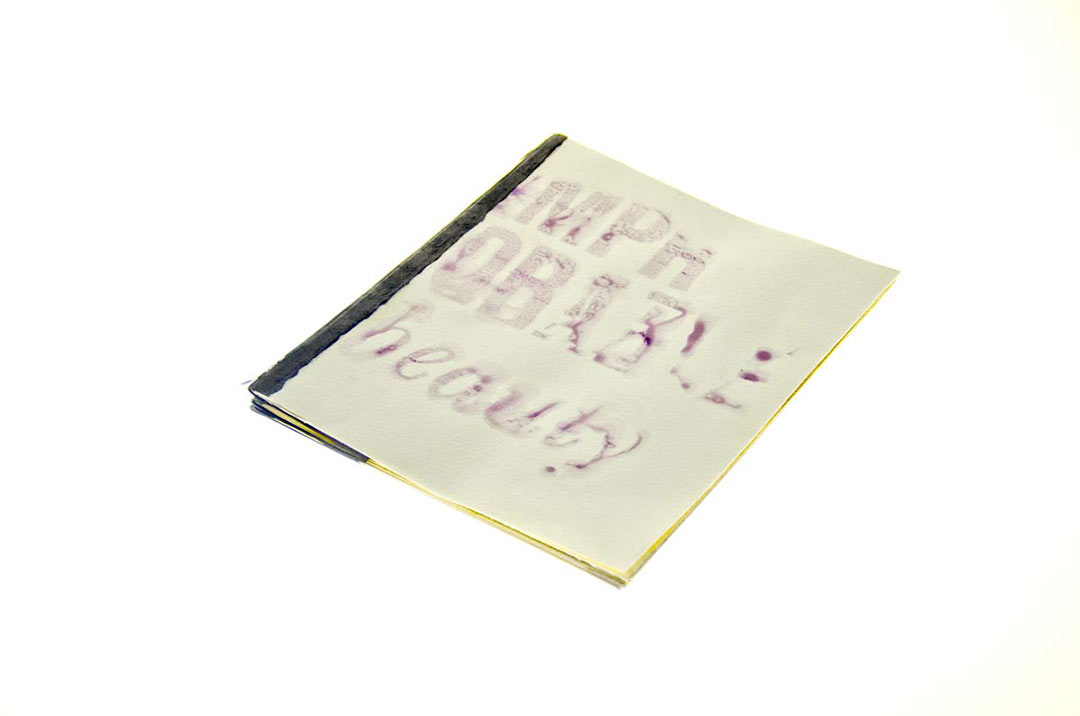 IMPR
OBABLE
beauty